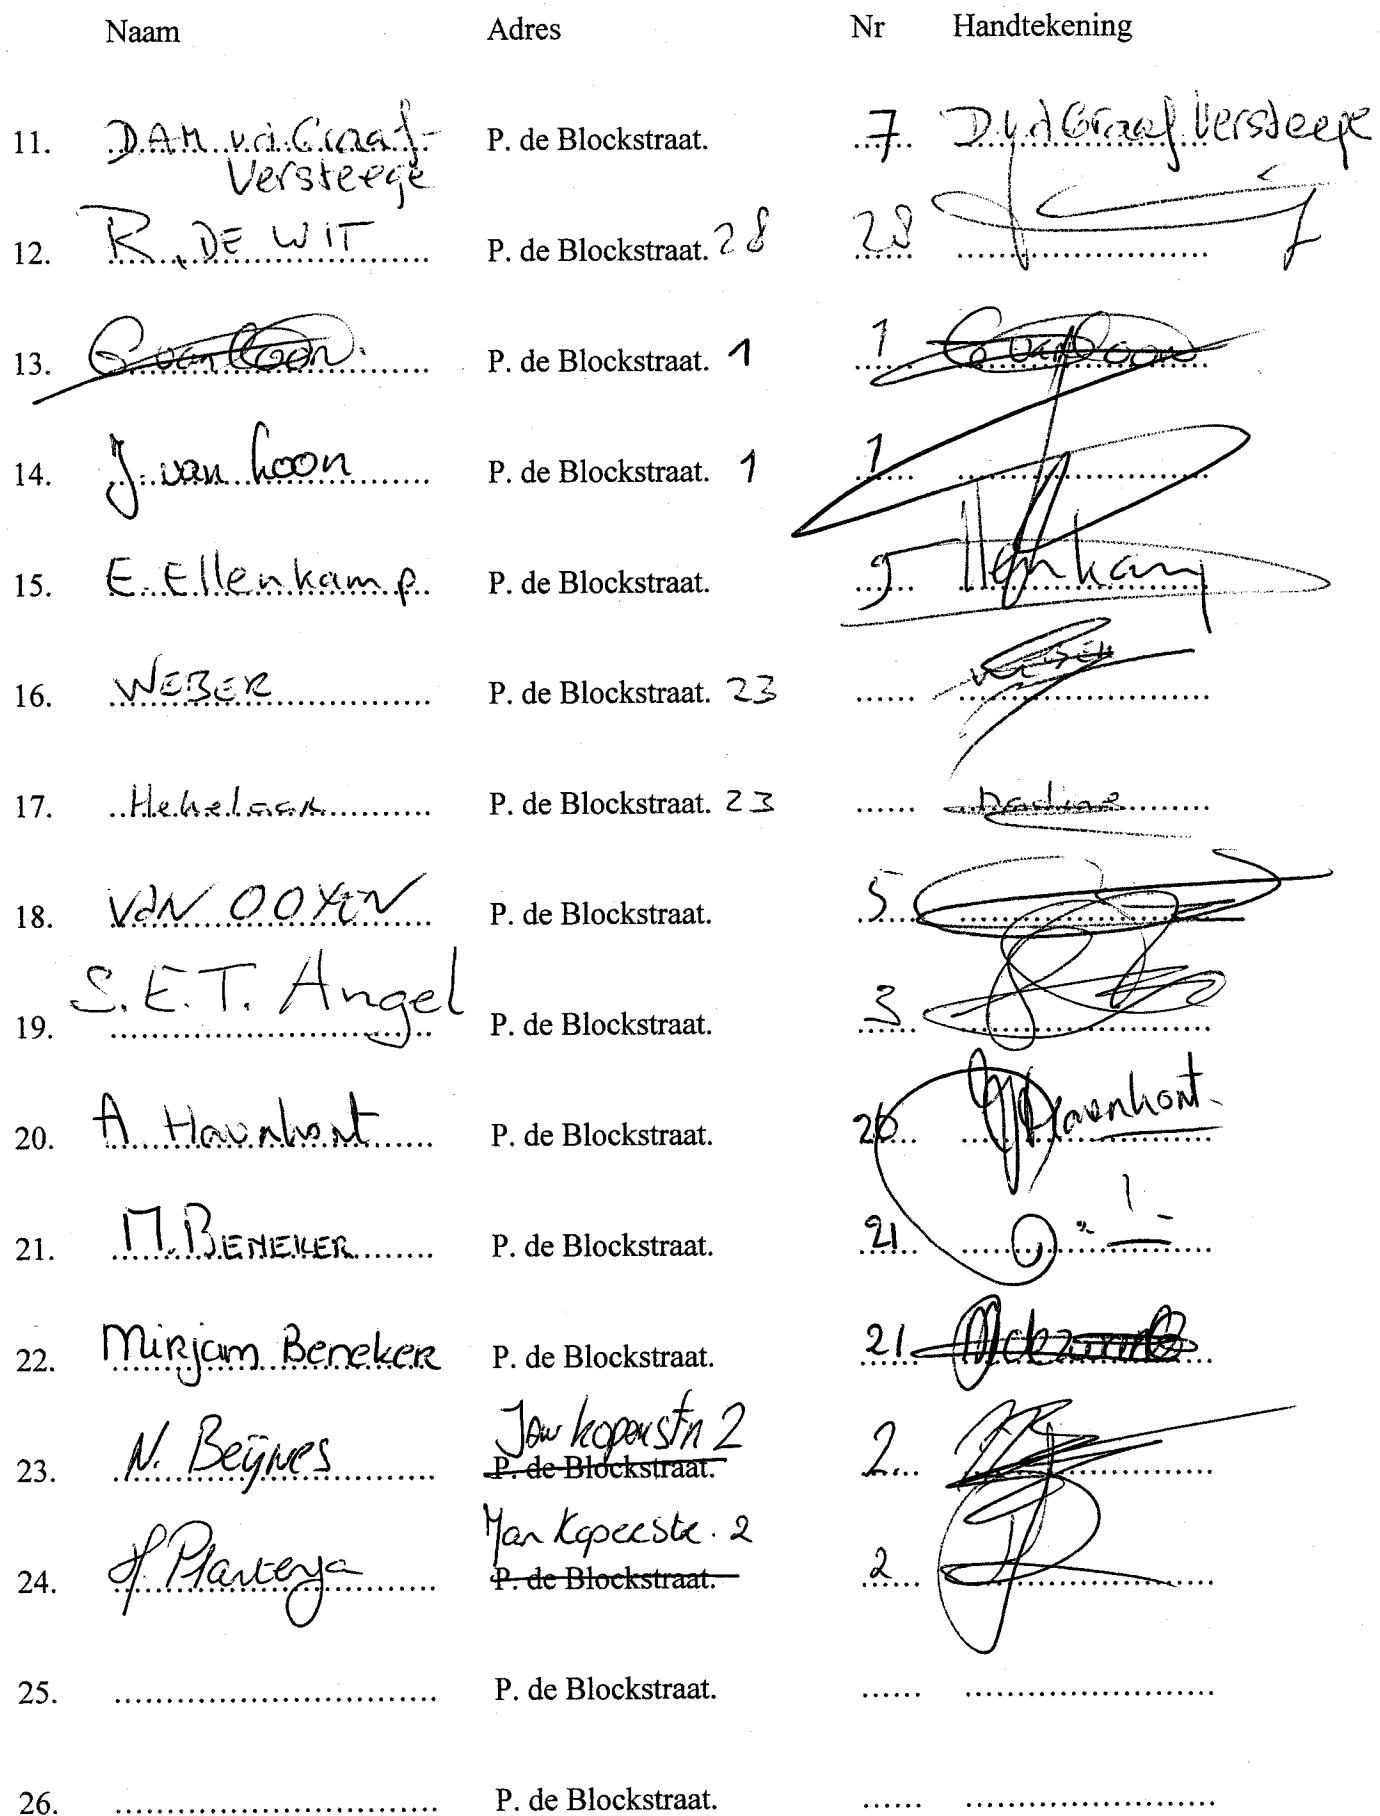 Naam Adres Nr Handtekening
11. D.A.M. v.d. Graaf- P. de Blockstraat. 7 D v d Graaf Versteege
Versteege
12. R. DE WIT P. de Blockstraat. 28 28
13. G van Loon. P. de Blockstraat. 1 1 G van Loon
14. J. van Loon P. de Blockstraat. 1 1
15. E. Ellenkamp. P. de Blockstraat. 9 Ellenkamp
16. WEBER P. de Blockstraat. 23
17. Hekelaar P. de Blockstraat. 23 nadine
18. VAN OOYEN P. de Blockstraat. 5
19. S.E.T. Angel P. de Blockstraat. 3
20. A. P. de Blockstraat. 20
21. M. BENEKER P. de Blockstraat. 21
22. Mirjam Beneker P. de Blockstraat. 21
23. N. Beijnes 2
P. de Blockstraat. 2
24. 2
P. de Blockstraat. 2
25. P. de Blockstraat.
26. P. de Blockstraat.